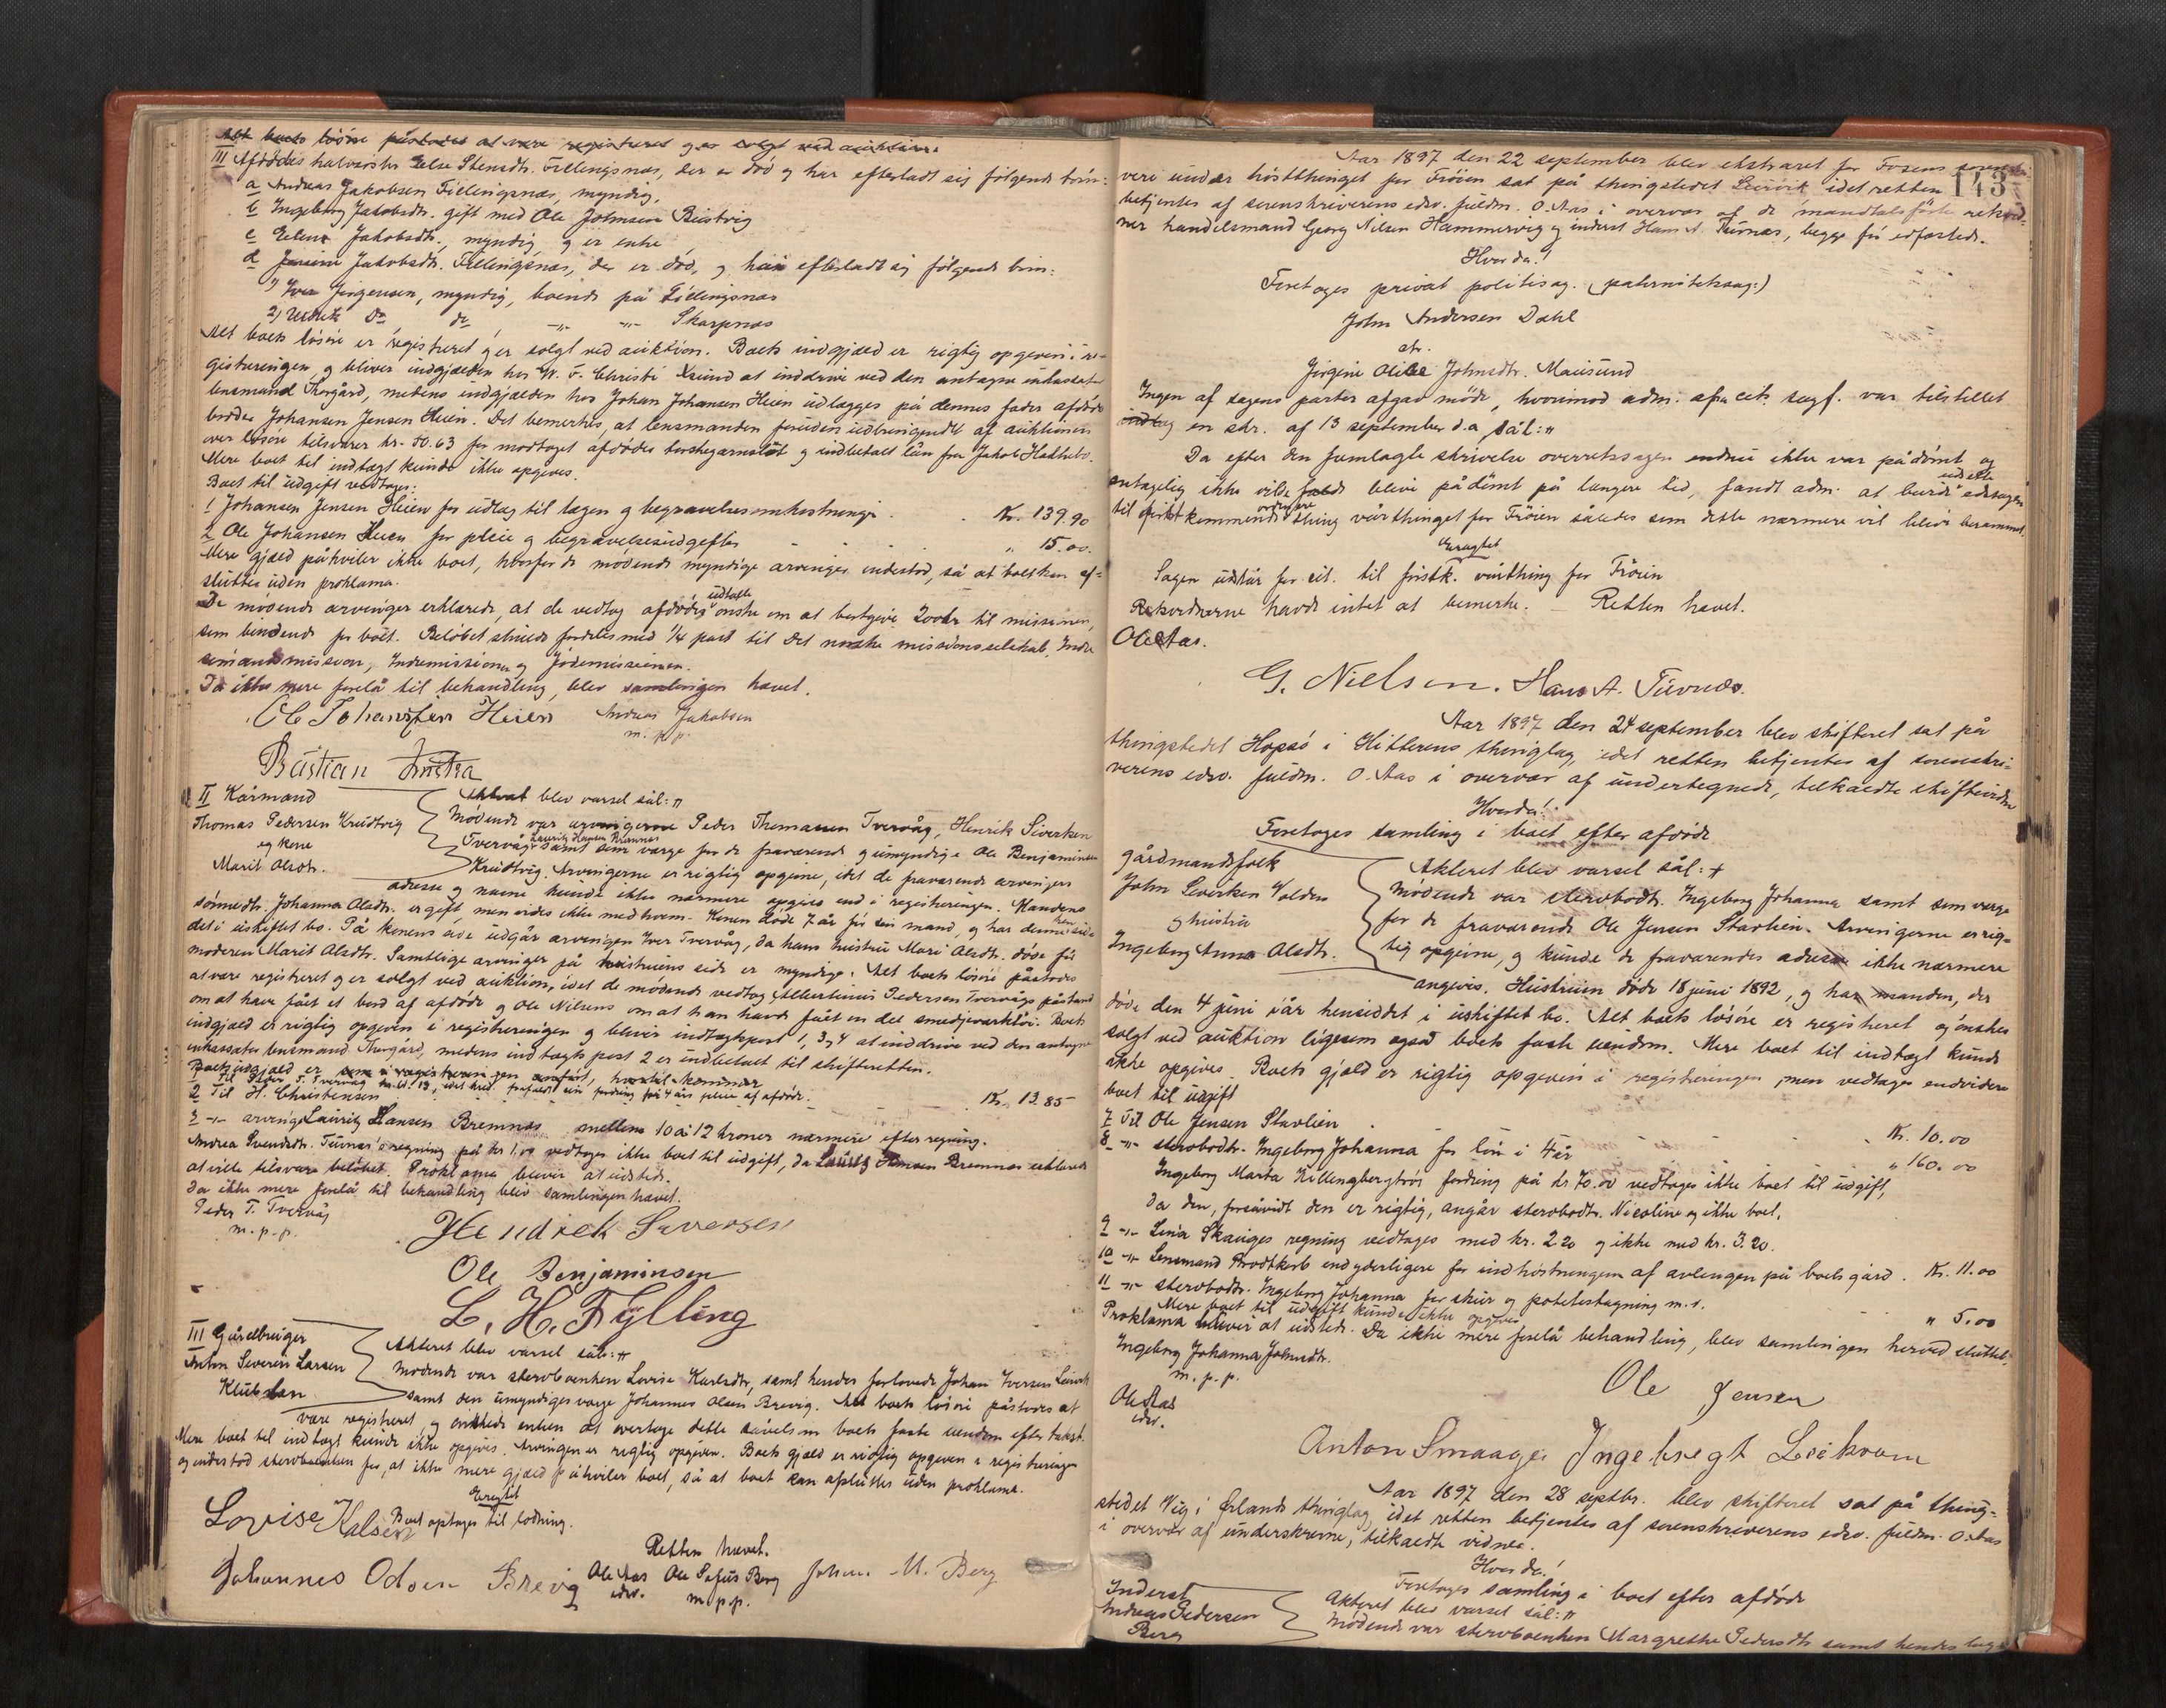 Alt boets løsøre påstodes at være registreret og er solgt ved auktion.
III Afdødes halvsøster Else Stensdtr. Fillingsnæs, der er død og har efterladt sig følgende børn:
a Andreas Jakobsen Fillingsnæs, myndig,
b Ingeborg Jakobsdtr. gift med Ole Johnsen
c Elene Jakobsdtr., myndig og er enke
d Jakobsdtr. Fillingsnæs, der er død, og har efterladt sig følgende børn:
1) Iver Jørgensen, myndig, boende på Fillingsnæs
2) do do -"- -"- Skarpnæs
Alt boets løsøre er registreret og er solgt ved auktion. Boets indgjæld er rigtig opgiven i re-
gistreringen og bliver indgjælden hos W. F. Christi Xsund at inddrive ved den antagne inkassator
lensmand Thorgård, medens indgjælden hos Johan Johansen Heien udlægges på dennes fader afdødes
broder Johansen Jensen Heien. Det bemerkes, at lensmanden foruden udbringendet af auktionen
over løsøre tilsvarer kr. 50.63 for modtaget afdødes torskegarnslot og indbetalt lån fra Jakob
Mere boet til indtægt kunde ikke opgives.
Boet til udgift vedtoges:
1 Johansen Jensen Heien for udlæg til lægen og begravelsesomkostninger . . Kr. 139.90
2 Ole Johansen Heien for pleie og begravelsesudgifter - - - " 15.00.
Mere gjæld påhviler ikke boet, hvorfor de mødende myndige arvinger indestod, så at boet kan af-
sluttes uden proklama.
De mødende arvinger erklærede, at de vedtog afdødes udtalte ønske om at bortgive 200 kr til missionen,
som bindende for boet. Beløbet skulde fordeles med 1/4 part til Det norske missionsselskab, Indre
sømandsmission, Indremissionen og Jødemissionen.
Da ikke mere forelå til behandling, blev samlingen hævet.
Ole Johansen Heien Andreas Jakobsen
m. p. p.
Bastian
II Kårmand
Thomas Pedersen Kreidtvig
og kone
Marit Olsdtr.
Akteret blev varsel sål: #
Mødende var arvingerne Peder Thomassen Tvervåg, Henrik Sivertsen
Tvervåg, Laurits Hansen Bremnes samt som værge for de fraværende og umyndige Ole Benjaminsen
Kreidtvig. Arvingerne er rigtig opgivne, idet de fraværende arvingers
adresse og navne kunde ikke nærmere opgives end i registreringen. Mandens
sønnedtr. Johanna Olsdtr. er gift men vides ikke med hvem. Konen døde 7 år før sin mand, og har denne hen sid-
det i uskiftet bo. På konens side udgår arvingen Iver Tvervåg, da hans hustru Mari Olsdtr. døde før
moderen Marit Olsdtr. Samtlige arvinger på hustruens side er myndige. Alt boets løsøre påstodes
at være registreret og er solgt ved auktion, idet de mødende vedtog Albertinus Pedersen Tvervågs påstand
om at have fået et bord af afdøde og Ole Nilsens om at han havde fået en del smedjeværktøi. Boets
indgjæld er rigtig opgiven i registreringen og bliver indtægtspost 1, 3 og 4 at inddrive ved den antagne
inkassator lensmand Thorgård, medens indtægts post 2 er indbetalt til skifteretten.
1 Til Peder T. Tvervåg
2 Til H. Christensen . . . Kr. 13.85
3 -"- arving Laurits Hansen Bremnes mellem 10 à 12 kroner nærmere efter regning.
Andrea Svendsdtr. Tuvnæs' regning på kr 1.00 vedtoges ikke boet til udgift, da Laurits Hansen Bremnes erklærede
at ville tilsvare beløbet. Proklama bliver at udstede.
Da ikke mere forelå til behandling blev samlingen hævet.
Peder T. Tvervåg
m. p. p.
Hendrek Siversen
Ole Benjaminsen
L. H. Fylling
III Gårdbruger
Anton Severin Larsen
Klubstan
Akteret blev varsel sål: #
Mødende var stervboenken Lovise Karlsdtr, samt hendes forlovede Johan Iversen Leirvik
samt den umyndiges værge Johannes Olsen Brevig. Alt boets løsøre påstodes at
være registreret, og ønskede enken at overtage dette såvelsom boets faste eiendom efter takst.
Mere boet til indtægt kunde ikke opgives. Arvingen er rigtig opgiven. Boets gjæld er rigtig opgiven i registreringen
og indestod stervboenken for, at ikke mere gjæld påhviler boet, så at boet kan afsluttes uden proklama.
Eragtet
Boet optages til lodning.
Lovise Kalsen
Retten hævet.
Johannes Olsen Brevig Ole Aas Ole Sofus Berg Johan M. Berg
edsv. m.p.p.
143
Aar 1897 den 22 september blev ekstraret for Fosens sorenskri-
veri under høstthinget for Frøien sat på thingstedet Leirvik idet retten
betjentes af sorenskriverens edsv. fuldm. O. Aas i overvær af de mandtalsførte retsvid-
ner handelsmand Georg Nilsen Hammervig og inderst Hans A. Tuvnæs, begge før edfæstede.
Hvorda!
Foretoges privat politisag. (paternitetssag:)
John Andersen Dahl
ctr.
Jørgine Olise Johnsdtr. Mausund
Ingen af sagens parter afgav møde, hvorimod adm. afra cit. sagf. var tilstillet
en skr. af 13 september d.a sål: #
Da efter den fremlagte skrivelse overretssagen endnu ikke var pådømt og
antagelig ikke vilde blive pådømt på længere tid, fandt adm. at burde udsætte edssagen
til førstkommende ordinære thing vårthinget for Frøien således som dette nærmere vil blive berammet.
Eragtet
Sagen udstår for cit. til førstk. vårthing for Frøien
Retsvidnerne havde intet at bemerke. — Retten hævet.
Ole Aas.
G. Nielsen. Hans A. Tuvnæs.
Aar 1897 den 24 september blev skifteret sat på
thingstedet Hopsø i Hitterens thinglag, idet retten betjentes af sorenskri-
verens edsv. fuldm. O. Aas i overvær af undertegnede, tilkaldte skiftevidner
Hvorda!
Foretoges samling i boet efter afdøde
gårdmandsfolk
John Sivertsen Volden
og hustru
Ingeborg Anna Olsdtr.
Akteret blev varsel sål: +
Mødende var stervbodtr. Ingeborg Johanna samt som værge
for de fraværende Ole Jensen Stavlien. Arvingerne er rig-
tig opgivne, og kunde de fraværendes adresse ikke nærmere
angives. Hustruen døde 18 juni 1892, og har manden, der
døde den 4 juni iår hensiddet i uskiftet bo. Alt boets løsøre er registreret og ønskes
solgt ved auktion ligesom også boets faste eiendom. Mere boet til indtægt kunde
ikke opgives. Boets gjæld er rigtig opgiven i registreringen, men vedtages endvidere
boet til udgift
7 Til Ole Jensen Stavlien . . . Kr. 10.00
8 -"- stervbodtr. Ingeborg Johanna for løn i 4 år " 160.00
Ingeborg Marta Killingbergtrøs fordring på kr 70.00 vedtages ikke boet til udgift,
da den, forsåvidt den er rigtig, angår stervbodtr. Nicoline og ikke boet.
9 -"- Lina Skauges regning vedtages med kr. 2.20 og ikke med kr. 3.20.
10 -"- Lensmand Brodtkorb endyderligere for indhøstningen af avlingen på boets gård . Kr. 11.00
11 -"- stervbodtr. Ingeborg Johanna for skur og potetestagning m. v. " 5.00
Mere boet til udgift kunde ikke opgives
Proklama bliver at udstede. Da ikke mere forelå behandling, blev samlingen herved sluttet.
Ingeborg Johanna Johnsdtr.
m. p. p.
Ole Jensen
Ole Aas
edsv.
Anton Smaage Ingebregt Leikvam
Aar 1897 den 28 septbr. blev skifteret sat på thing-
stedet Vig i Ørlands thinglag, idet retten betjentes af sorenskriverens edsv. fuldm. O. Aas
i overvær af underskrevne, tilkaldte vidner.
Hvorda!
Foretoges samling i boet efter afdøde
Inderst
Andreas Pedersen
Berg
Akteret blev varsel sål: #
Mødende var stervboenken Margrethe Pedersdtr samt hendes